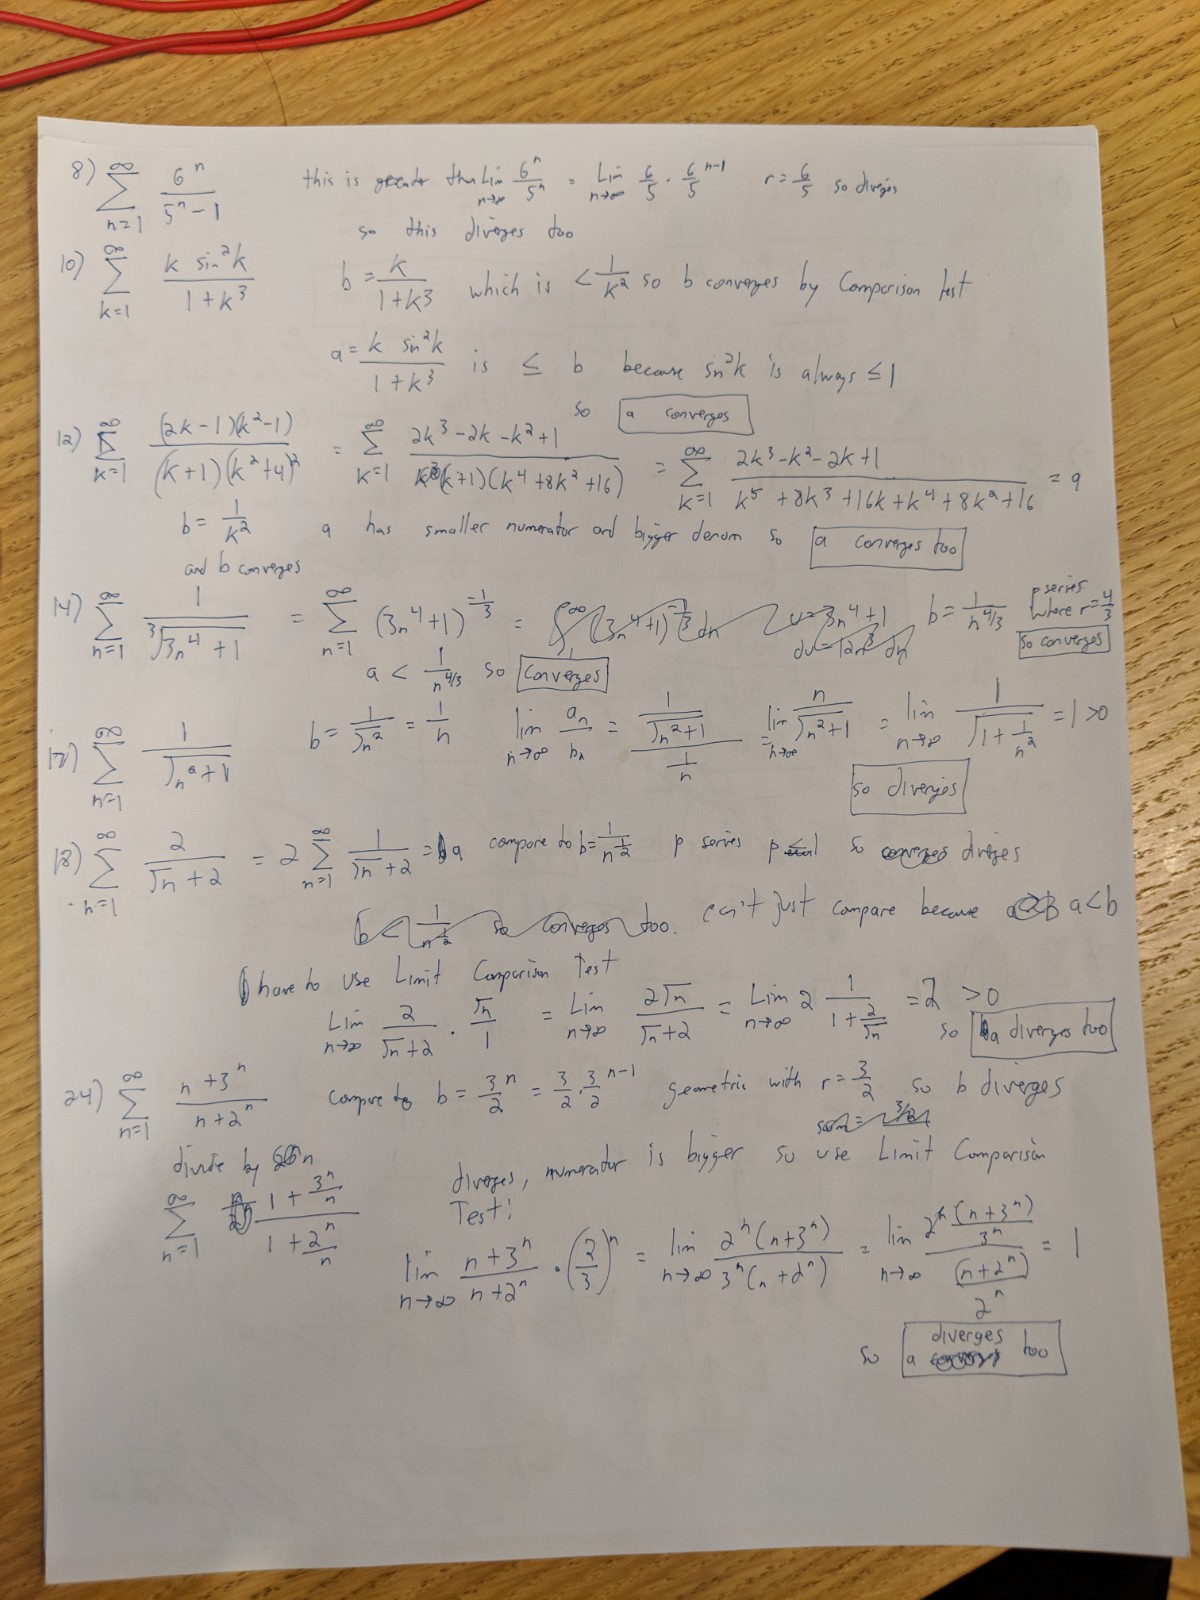 8) ∑_{n=1}^{∞} 6^n/(5^n - 1) this is greater than Lim_{n→∞} 6^n/5^n = Lim_{n→∞} 6/5 · 6/5^{n-1} r = 6/5 so diverges
so this diverges too
10) ∑_{k=1}^{∞} (k sin²k)/(1+k³) b = k/(1+k³) which is < 1/k² so b converges by Comparison test
a = (k sin²k)/(1+k³) is ≤ b because sin²k is always ≤ 1
so a converges
12) ∑_{k=1}^{∞} ((2k-1)(k²-1))/((k+1)(k²+4)²) = ∑_{k=1}^{∞} (2k³-2k-k²+1)/((k+1)(k⁴+8k²+16)) = ∑_{k=1}^{∞} (2k³-k²-2k+1)/(k⁵+8k³+16k+k⁴+8k²+16) = a
b = 1/k² a has smaller numerator and bigger denom so a converges too
and b converges
14) ∑_{n=1}^{∞} 1/∛(3n⁴+1) = ∑_{n=1}^{∞} (3n⁴+1)^{-1/3} = ∫_1^∞ (3n⁴+1)^{-1/3} dn u = 3n⁴+1 du = 12n³ dn b = 1/n^{4/3} p series where r = 4/3 so converges
a < 1/n^{4/3} so converges
17) ∑_{n=1}^{∞} 1/√(n²+1) b = 1/√n² = 1/n lim_{n→∞} a_n/b_n = (1/√(n²+1))/(1/n) = lim_{n→∞} n/√(n²+1) = lim_{n→∞} 1/√(1+1/n²) = 1 > 0
so diverges
18) ∑_{n=1}^{∞} 2/(√n+2) = 2 ∑_{n=1}^{∞} 1/(√n+2) = a compare to b = 1/n^{1/2} p series p ≤ 1 so converges diverges
b < 1/n^{1/2} so converges too. can't just compare because a<b
have to use Limit Comparison Test
Lim_{n→∞} 2/(√n+2) · √n/1 = Lim_{n→∞} 2√n/(√n+2) = Lim_{n→∞} 2 1/(1+2/√n) = 2 > 0
so a diverges too
24) ∑_{n=1}^{∞} (n+3^n)/(n+2^n) compare to b = 3/2^n = 3/2 · 3/2^{n-1} geometric with r = 3/2 so b diverges
sum = 3/2
divide by n diverges, numerator is bigger so use Limit Comparison
Test:
∑_{n=1}^{∞} (1+3^n/n)/(1+2^n/n)
lim_{n→∞} (n+3^n)/(n+2^n) · (2/3)^n = lim_{n→∞} (2^n(n+3^n))/(3^n(n+2^n)) = lim_{n→∞} ((n+3^n)/3^n)/((n+2^n)/2^n) = 1
so a diverges too